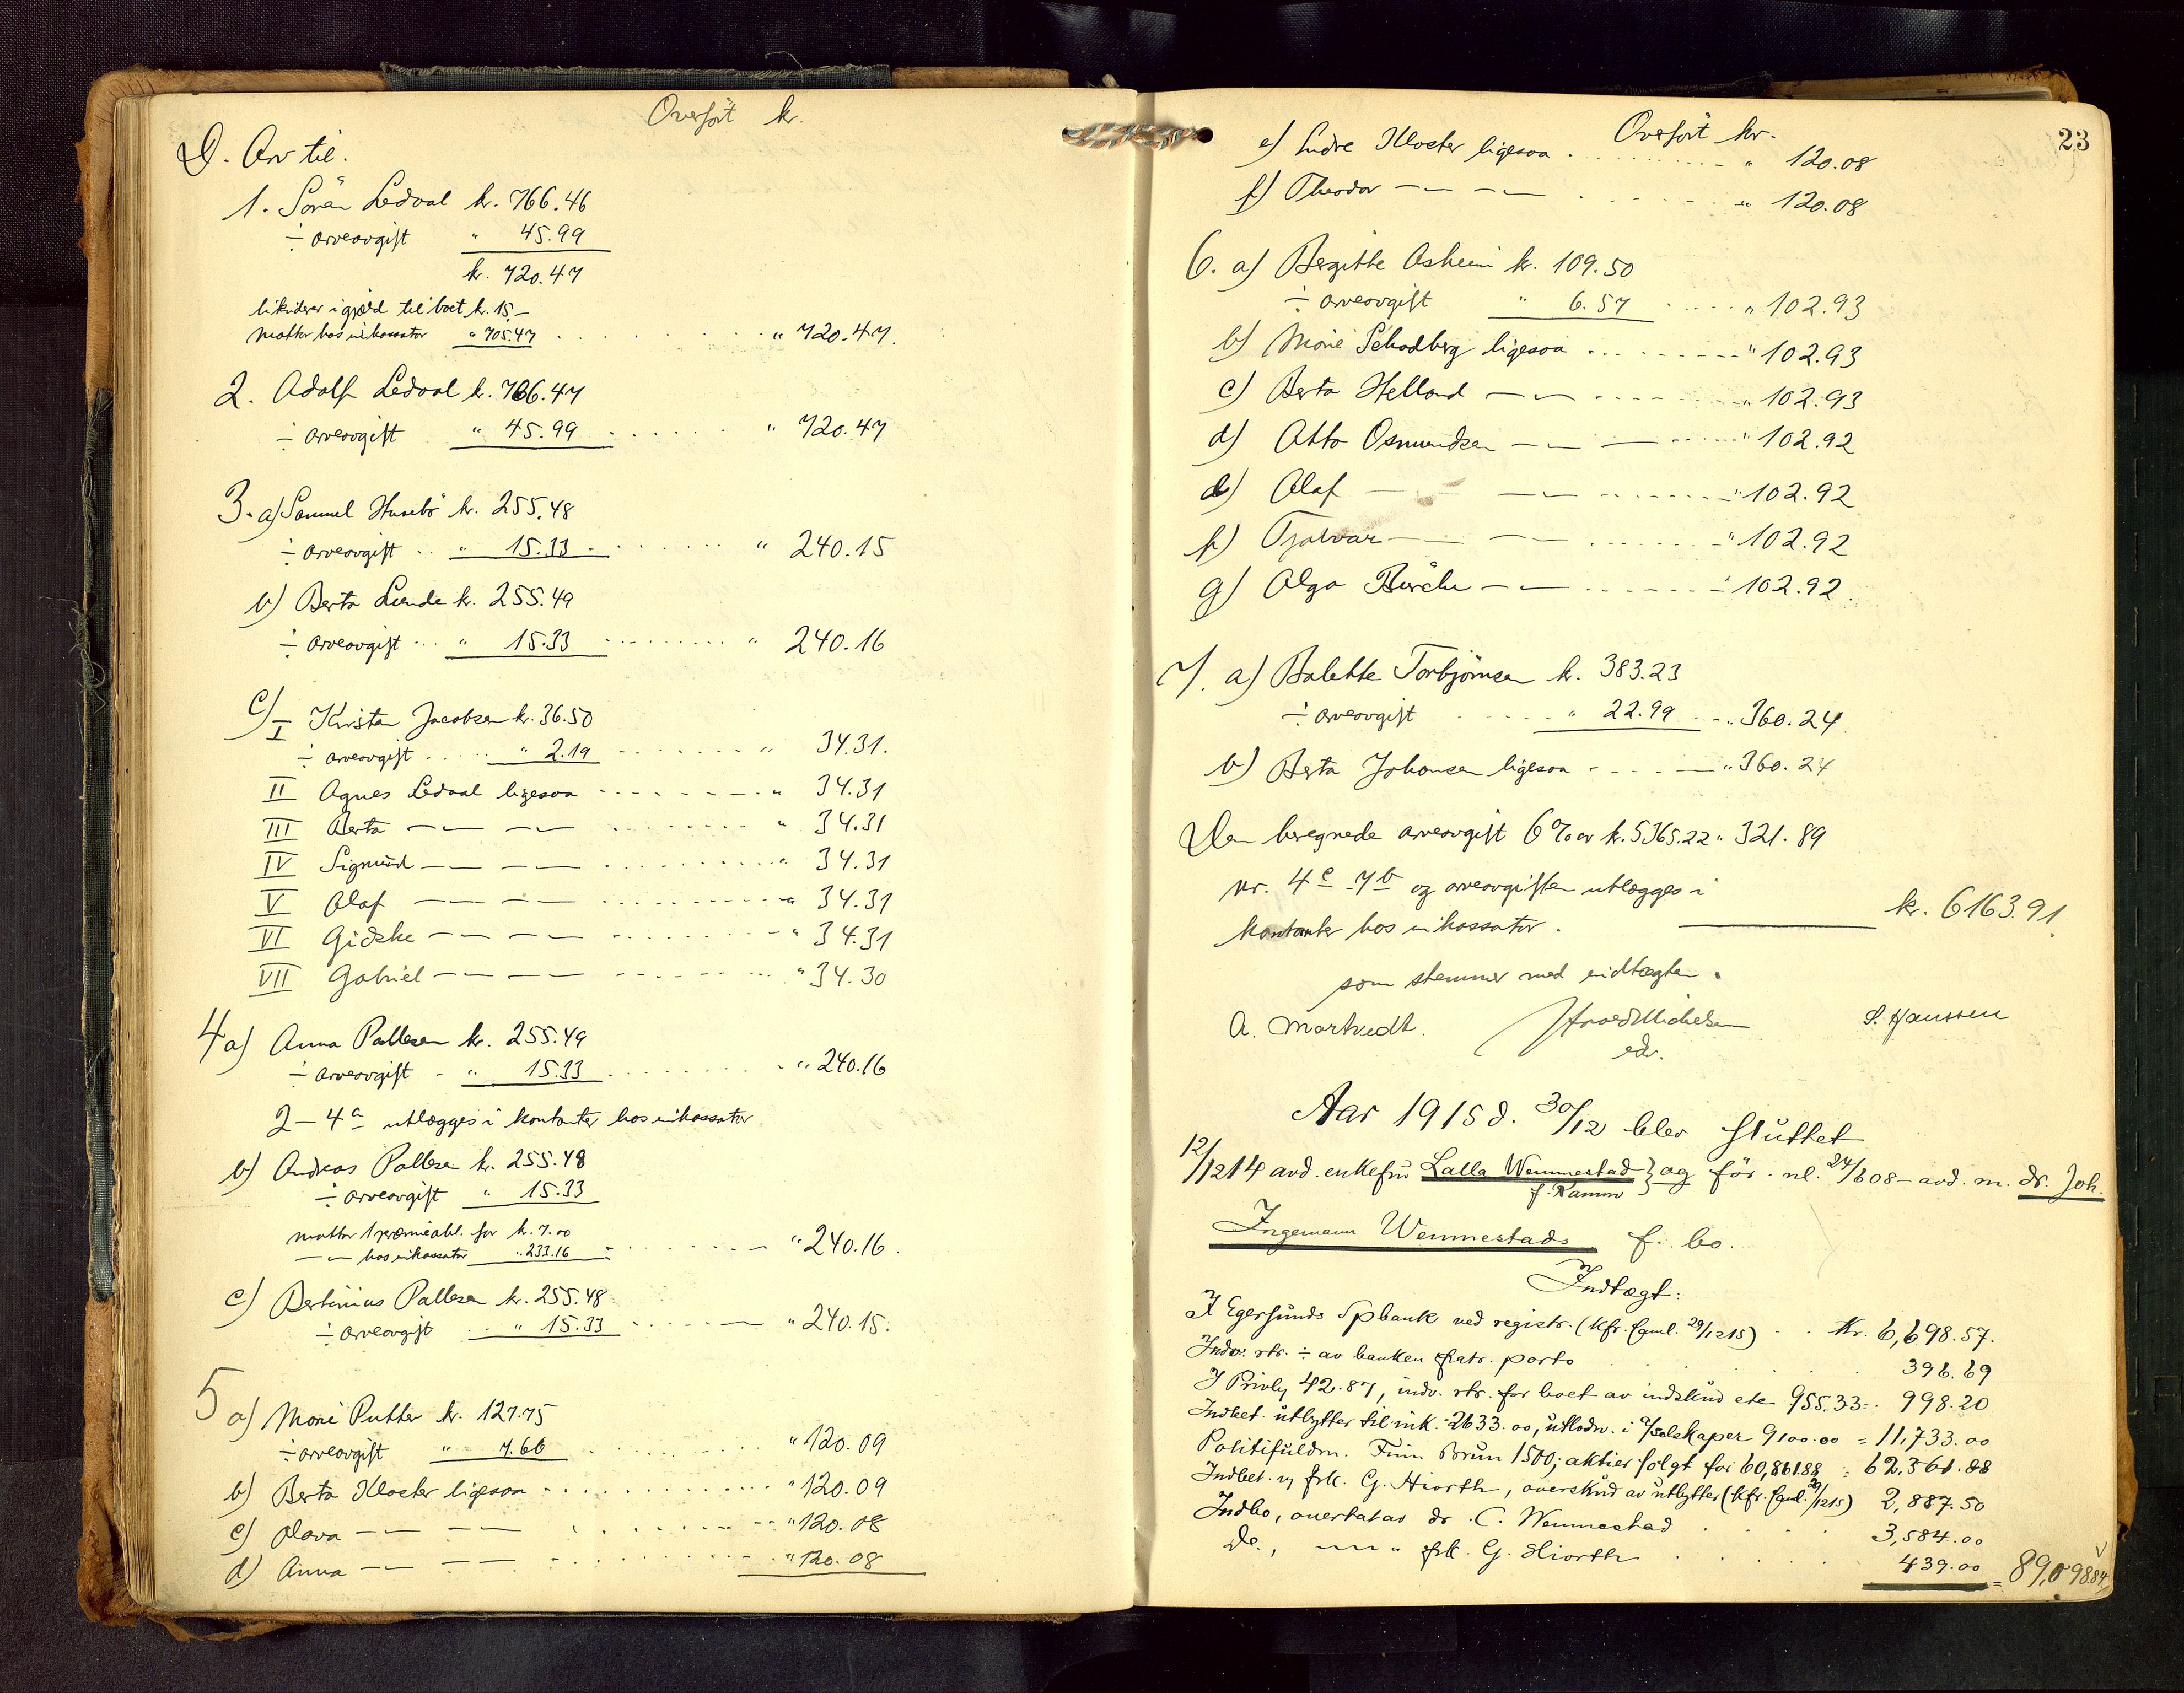 Overført kr.
D. Arv til.
1. Sören Ledaal kr. 766.46
÷ arveavgift " 45.99
kr. 720.47
likviderer i gjæld til boet kr. 15.–
mottar hos inkassator " 705.47 . . . . . . " 720.47.
2. Adolf Ledaal kr. 766.47
÷ arveavgift " 45.99 . . . . . . " 720.47
3. a) Samuel Husebö kr. 255.48
÷ arveavgift . . " 15.33 . . . . . . " 240.15
b) Berta Lende kr. 255.49
÷ arveavgift . . " 15.33 . . . . . . " 240.16
c) I Kirsten Jacobsen kr. 36.50
÷ arveavgift . . . . " 2.19 . . . . . . " 34.31.
II Agnes Ledaal ligesaa . . . . . . " 34.31
III Berta —"— —"— . . . . . . " 34.31
IV Sigmund —"— —"— . . . . . . " 34.31
V Olaf —"— —"— . . . . . . " 34.31
VI Gidske —"— —"— . . . . . . " 34.31
VII Gabriel —"— —"— . . . . . . " 34.30
4 a) Anna Pallesen kr. 255.49
÷ arveavgift . " 15.33 . . . . . . " 240.16
2 – 4 a utlægges i kontanter hos inkassator
b) Andreas Pallesen kr. 255.48
÷ arveavgift " 15.33
mottar 1 præmieobl. for kr. 7.00
—"— hos inkassator " 233.16 . . . . . . " 240.16.
c) Bertinius Pallesen kr. 255.48
÷ arveavgift . . " 15.33 . . . . . . " 240.15.
5 a) Marie Putter kr. 127.75
÷ arveavgift " 7.66 . . . . . . " 120.09
b) Berta Kloster ligesaa . . . . . . " 120.09
c) Olava —"— —"— . . . . . . " 120.08
d) Anna —"— —"— . . . . . . " 120.08
23
Overført kr.
e) Endre Kloster ligesaa . . . . . . " 120.08
f) Theodor —"— —"— . . . . . . " 120.08
6. a) Bergitte Asheim kr. 109.50
÷ arveavgift " 6.57 . . . . " 102.93
b) Marie Schodberg ligesaa . . . . . . " 102.93
c) Berta Helland —"— . . . . . . " 102.93
d) Otto Osmundsen —"— — . . . . " 102.92
e) Olaf —"— —"— . . . . . . " 102.92
f) Tjalvar —"— —"— . . . . . . " 102.92
g) Olga —"— . . . . . . " 102.92.
7. a) Balette Torbjörnsen kr. 383.23
÷ arveavgift . . . . " 22.99 . . " 360.24.
b) Berta Johansen ligesaa . . . . " 360.24
Den beregnede arveavgift 6% av kr. 5365.22 " 321.89
nr. 4 c - 7 b og arveavgiften utlægges i
kontanter hos inkassator. kr. 6163.91.
som stemmer med indtægten.
A. Martvedt. S. Hanssen
Aar 1915 d. 30/12 blev sluttet
12/12 14 avd. enkefru Lalla Wemmestad f. Kamm } og før - nl. 24/6 08 – avd. m. dr. Joh.
Ingemann Wemmestads f. bo.
Indtægt:
I Egersunds Spbank ved registr. (kfr. saml. 29/12 15) . . Kr. 6,698.57.
Indv. rtr. ÷ av banken fratr. porto . . . . 396.69
I Privby 42.87, indv. rtr. for boet av indskud etc 955.33 = . 998.20
Indbet. utbytter til ink. 2633.00, utlodn. i a/selskaper 9100.00 = 11,733.00
Politifuldm. Finn Bruun 1500; aktier solgt for 60,861.88 = 62,361.88
Indbet. v frk. G. Hiorth, overskud av utbytter (kfr. saml. 29/12 15) 2,887.50
Indbo, overtat av dr. C. Wemmestad . . . . 3,584.00
Do., —"— " frk. G. Hiorth . . . . 439.00 = 89,098.84